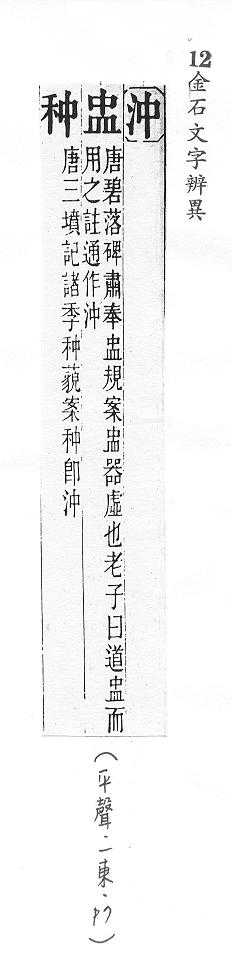 12金石文字辨異
〔沖〕
盅 唐碧落碑肅奉盅規案盅器虛也老子曰道盅而
用之註通作沖
种 唐三墳記諸季种藐案种即沖
(平聲·一東·p7)